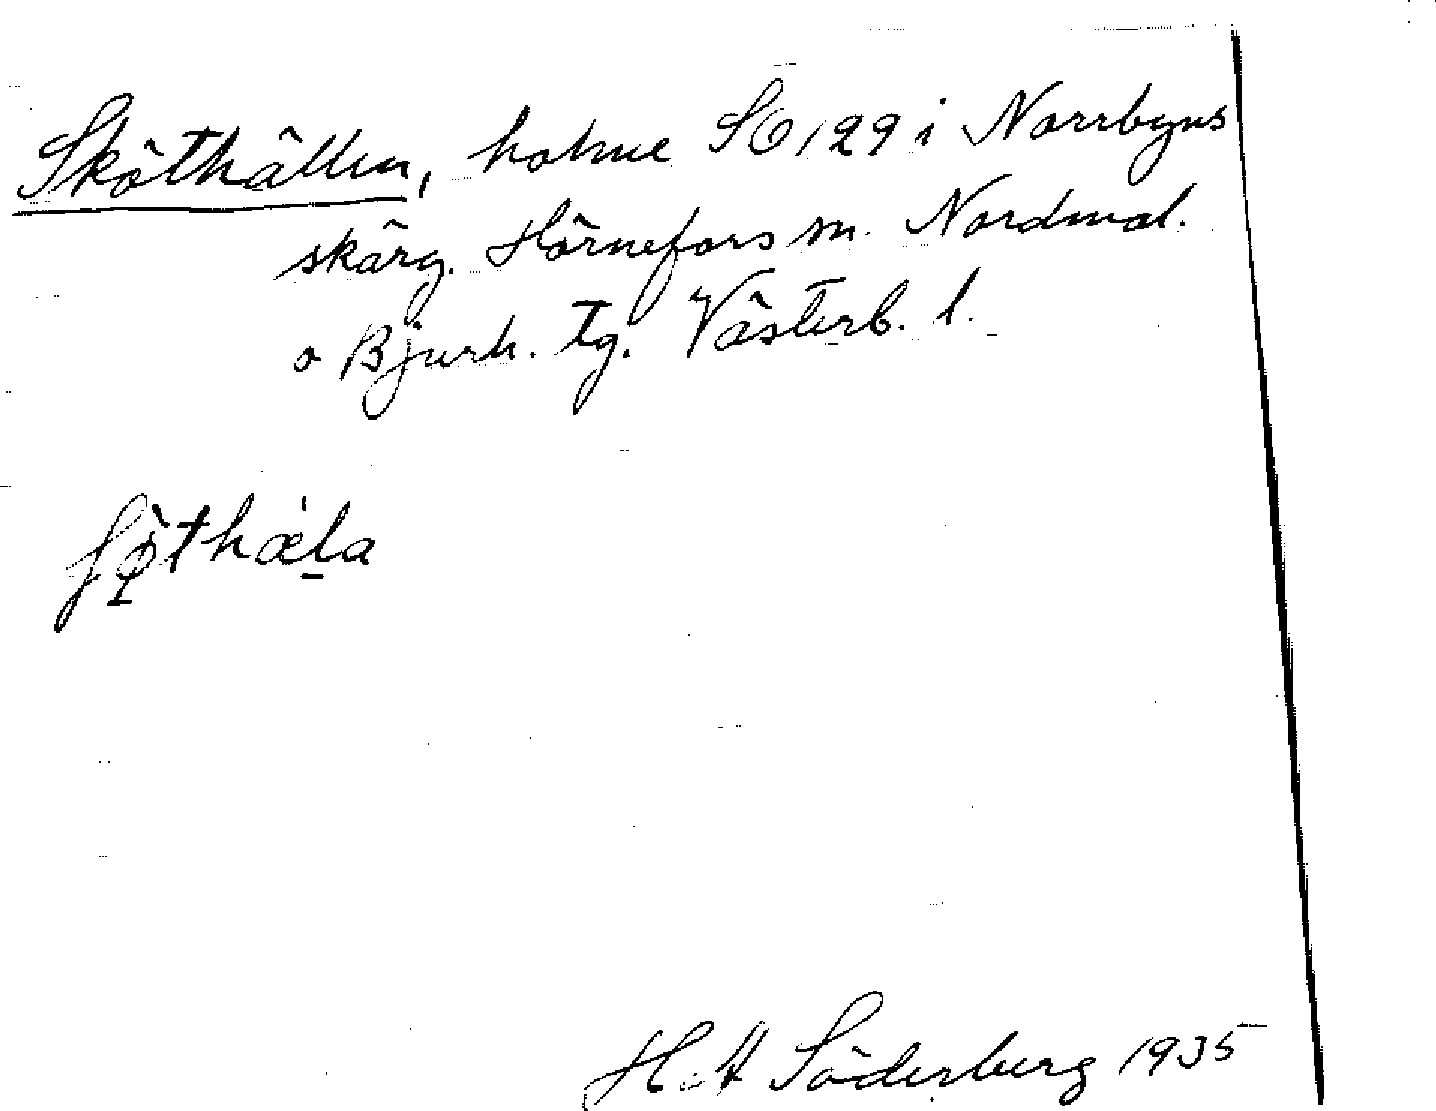 Sköthällen, holme SO 129 i Norrbyns
skärg. Hörnefors sn. Nordmal.
o Bjurh. tg. Västerb. l.
ʃø̀thæ̍la
H. H Söderberg 1935